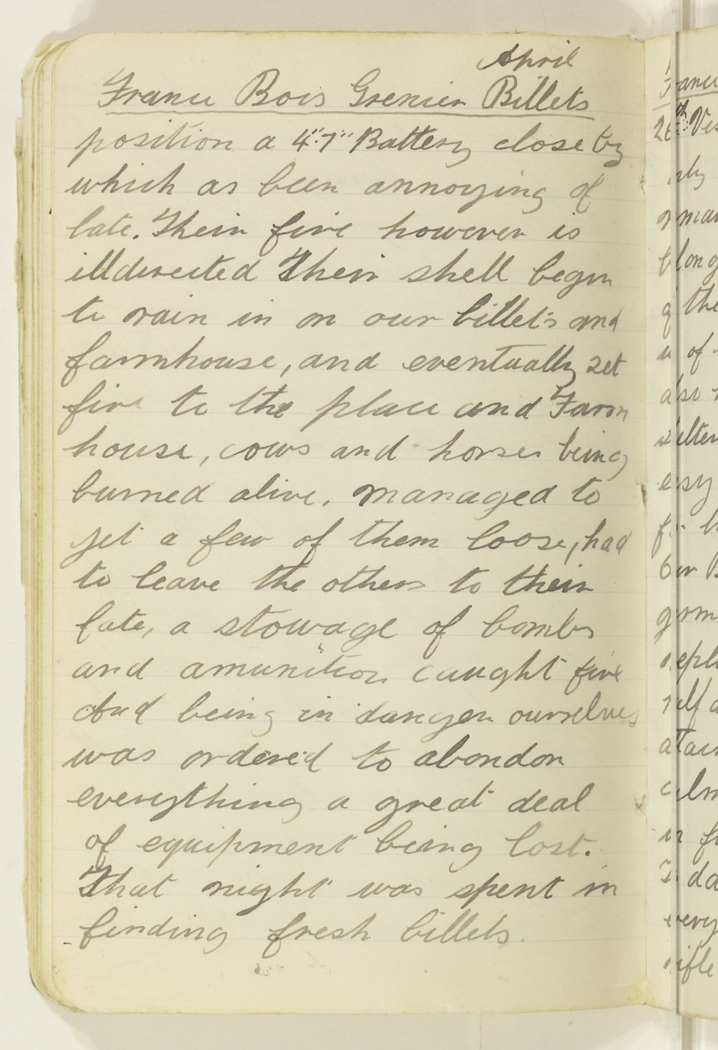 April
France Bois Grenier Billets
position a 4"."7" Battery close by
which as been annoying of
late. Their fire however is
illdirected Their shell began
to rain in on our billets and
farmhouse, and eventually set
fire to the place and Farm
house, cows and horses being
burned alive. managed to
get a few of them loose, had
to leave the others to their
fate, a stowage of bombs
and amunition caught fire
And being in danger ourselves
was ordered to abandon
everything a great deal
of equipment being lost.
That night was spent in
finding fresh billets.